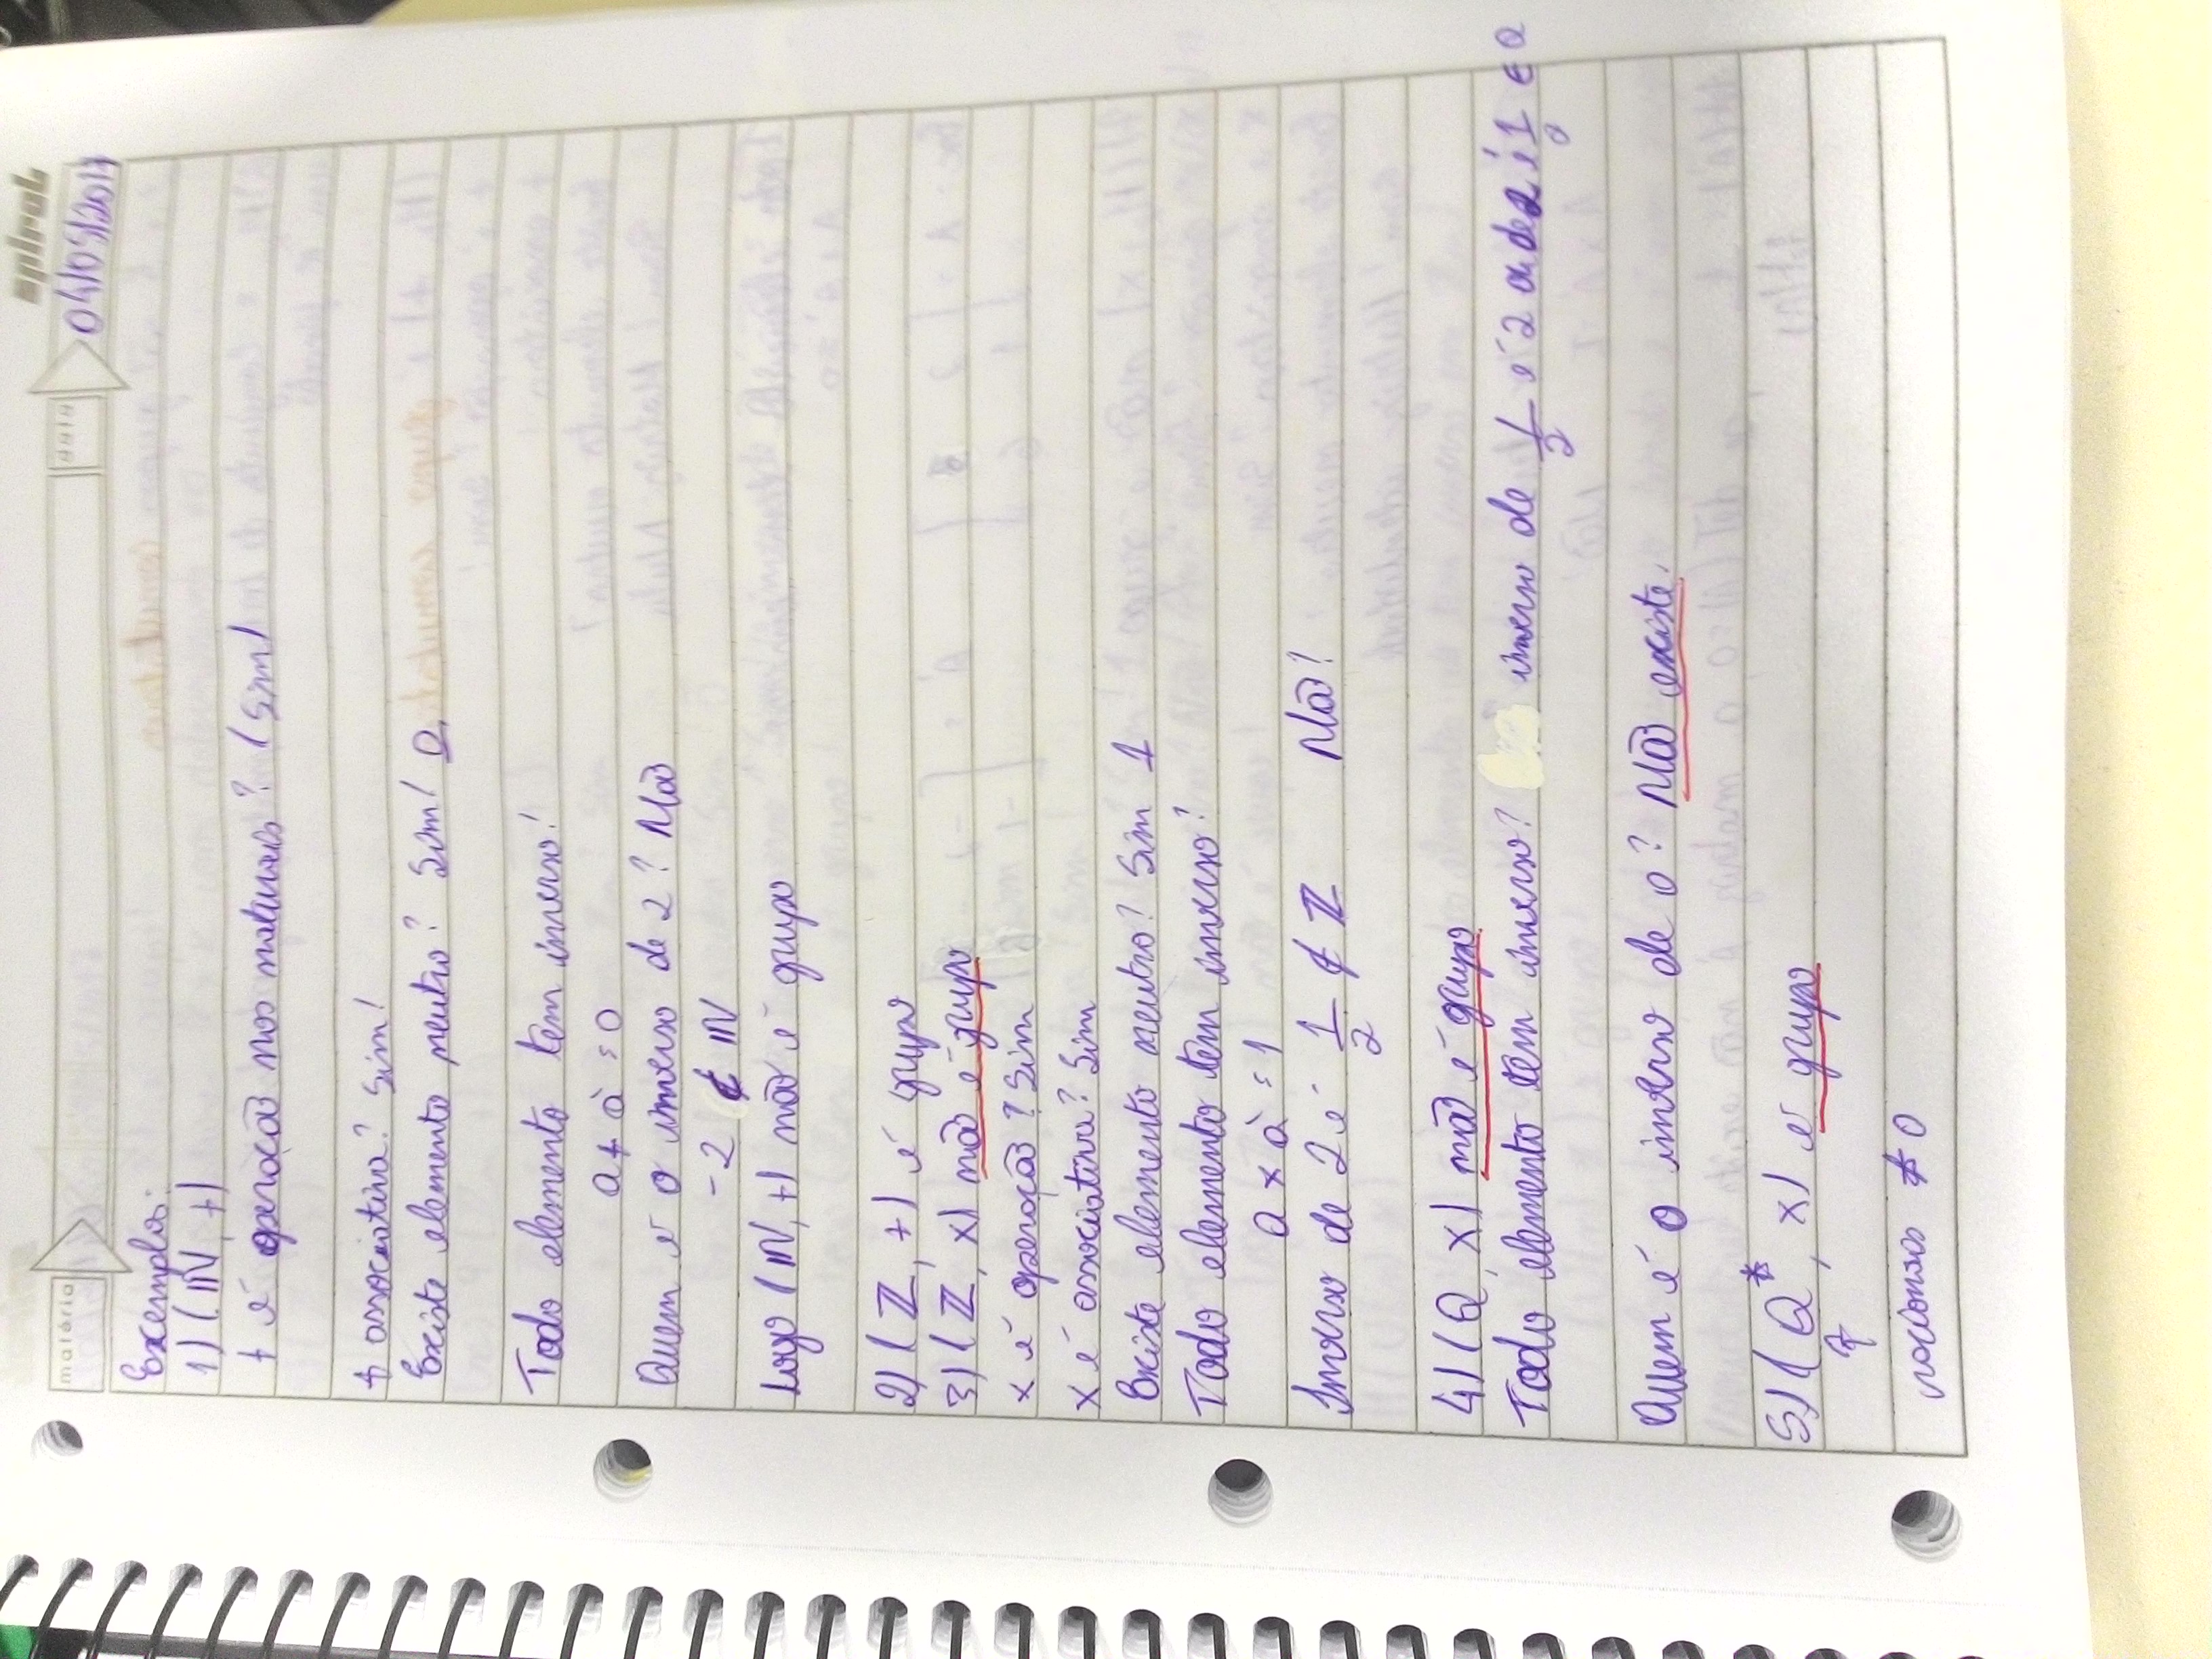 spiral
matéria
data
04/05/2017
Exemplos:
1) (IN, +)
+ é operação nos naturais? (Sim)
+ associativa? Sim!
Existe elemento neutro? Sim! 0.
Todo elemento tem inverso!
a + à = 0
Quem é o inverso de 2? Não
-2 ∉ IN
Logo (IN, +) não é grupo
2) (ℤ, +) é grupo
3) (ℤ, x) não é grupo
x é operação? Sim
x é associativa? Sim
Existe elemento neutro? Sim 1
Todo elemento tem inverso?
a x à = 1
Inverso de 2 é 1/2 ∉ ℤ Não!
4) (Q, x) não é grupo
Todo elemento tem inverso? inverso de 1/2 é 2 de 2 é 1/2 ∈ Q
Quem é o inverso de 0? Não existe.
5) (Q*, x) é grupo
racionais ≠ 0